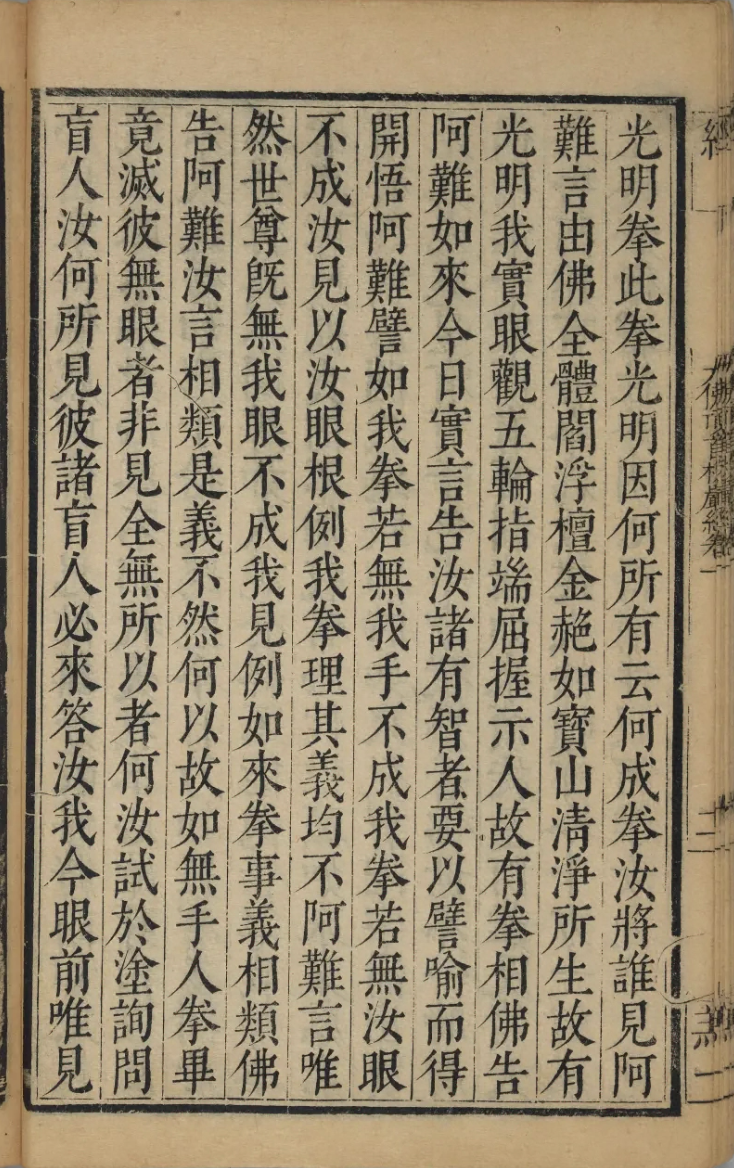 光明拳此拳光明因何所有云何成拳汝將誰見阿
難言由佛全體閻浮檀金赩如寶山清淨所生故有
光明我實眼觀五輪指端屈握示人故有拳相佛告
阿難如來今日實言告汝諸有智者要以譬喻而得
開悟阿難譬如我拳若無我手不成我拳若無汝眼
不成汝見以汝眼根例我拳理其義均不阿難言唯
然世尊旣無我眼不成我見例如來拳事義相類佛
告阿難汝言相類是義不然何以故如無手人拳畢
竟滅彼無眼者非見全無所以者何汝試於塗詢問
盲人汝何所見彼諸盲人必來答汝我今眼前唯見